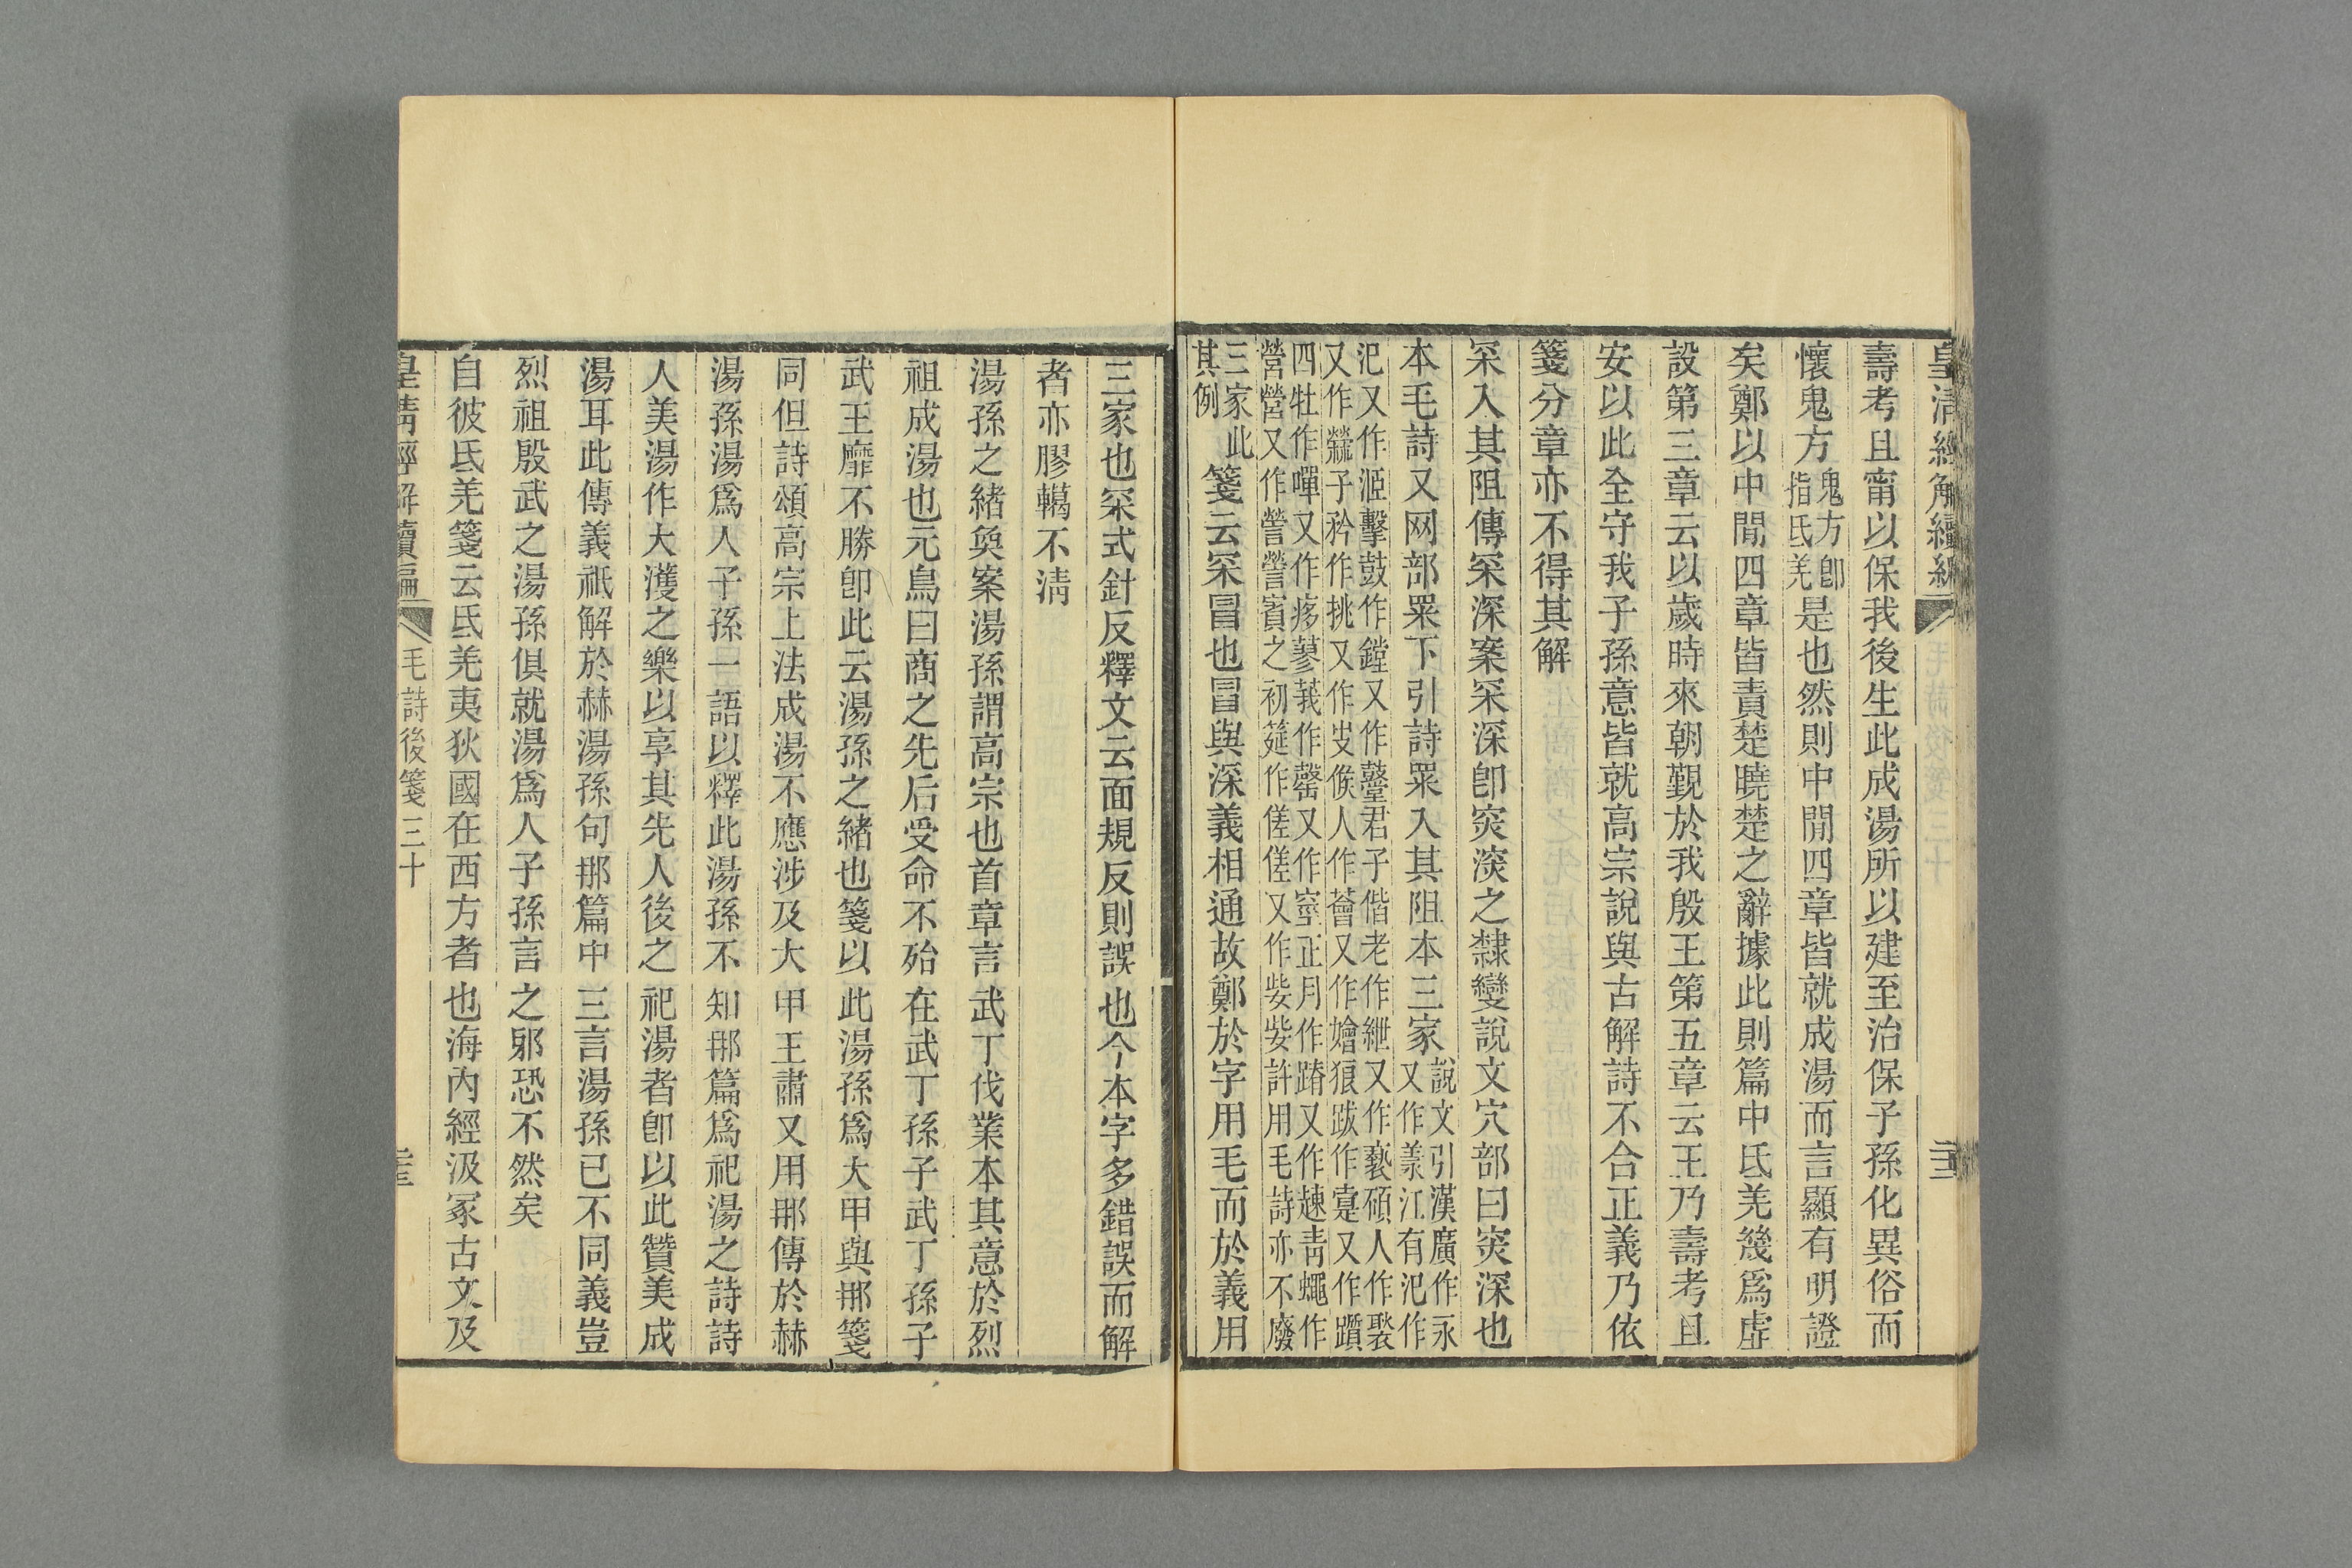 皇清經解續編
壽考且甯以保我後生此成湯所以建至治保子孫化異俗而
懷鬼方鬼方卽指氐羌是也然則中閒四章皆就成湯而言顯有明證
矣鄭以中閒四章皆責楚曉楚之辭據此則篇中氐羌幾爲虛
設第三章云以歲時來朝覲於我殷王第五章云王乃壽考且
安以此全守我子孫意皆就高宗說與古解詩不合正義乃依
箋分章亦不得其解
罙入其阻傳罙深案罙深卽突湥之隸變說文穴部曰突深也
本毛詩又网部罙下引詩罙入其阻本三家說文引漢廣作永又作羕江有汜作
汜又作洍擊鼓作鏜又作鼞君子偕老作紲又作褻碩人作褧
又作䋹子衿作挑又作㞋候人作薈又作嬒狼跋作疐又作躓
四牡作嘽又作痑蓼莪作罄又作窒正月作蹐又作趚青蠅作
營營又作謍謍賓之初筵作傞傞又作姕姕許用毛詩亦不廢
三家此其例箋云罙冒也冒與深義相通故鄭於字用毛而於義用
三家也罙式針反釋文云面規反則誤也今本字多錯誤而解
者亦膠轕不淸
湯孫之緒奐案湯孫謂高宗也首章言武丁伐業本其意於烈
祖成湯也元鳥曰商之先后受命不殆在武丁孫子武丁孫子
武王靡不勝卽此云湯孫之緒也箋以此湯孫爲大甲與那箋
同但詩頌高宗上法成湯不應涉及大甲王肅又用那傳於赫
湯孫湯爲人子孫一語以釋此湯孫不知那篇爲祀湯之詩詩
人美湯作大濩之樂以享其先人後之祀湯者卽以此贊美成
湯耳此傳義祇解於赫湯孫句那篇中三言湯孫已不同義豈
烈祖殷武之湯孫俱就湯爲人子孫言之邪恐不然矣
自彼氐羌箋云氐羌夷狄國在西方者也海內經汲冢古文及
皇清經解續編
毛詩後箋三十